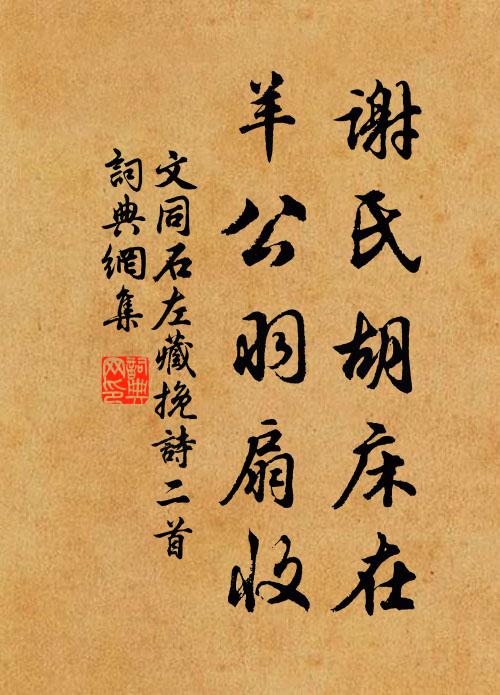 謝氏胡床在
羊公羽扇收
文同石左藏挽詩二首
詞典網集
詞典
網印